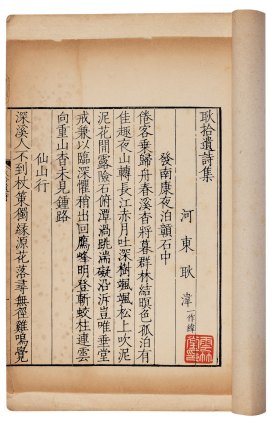 耿拾遺詩集
河東耿湋一作緯
發南康夜泊灨石中
倦客乗歸舟春溪杳將暮群林結暝色孤泊有
佳趣夜山轉長江赤月吐深樹颯颯松上吹泛
泛花間露險石俯潭渦跳湍礙沿泝豈唯垂堂
戒兼以臨深懼稍出回鴈峰明登斬蛟柱連雲
向重山杳未見鍾路
仙山行
深溪人不到杖策獨縁源花落尋無徑雞鳴覺